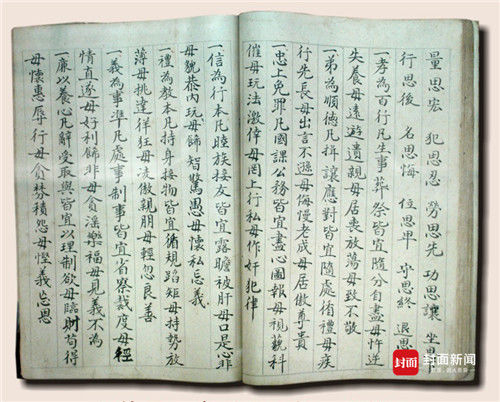 量思宏 犯思忍 勞思先 功思讓 坐思
行思後 名思悔 位思卑 守思終 退思
一孝為百行凡生事葬祭皆宜隨分自盡毋忤逆
失養毋遠遊遺親毋居喪放蕩毋致不敬
一弟為順德凡揖讓應對皆宜隨處循禮毋疾
行先長毋出言不遜毋侮慢老成毋居傲尊貴
一忠上免罪凡國課公務皆宜盡心圖報毋視藐科
催毋玩法激倖毋罔上行私毋作奸犯律
一信為行本凡睦族接友皆宜露膽被肝毋口是心非
毋貌恭內玩毋飾智驚愚毋懷私忘義
一禮為教本凡持身接物皆宜循規蹈矩毋持勢放
薄毋挑達徉狂毋凌傲親朋毋輕忽良善
一義為事準凡處事制事皆宜省察裁度毋經
情直遂毋好利飾非毋貪淫樂福毋見義不為
一廉以養心凡辭受取與皆宜以理制欲毋臨財苟得
毋懷惠辱行毋貪婪積怨毋慳義忘恩
封面 封面新闻